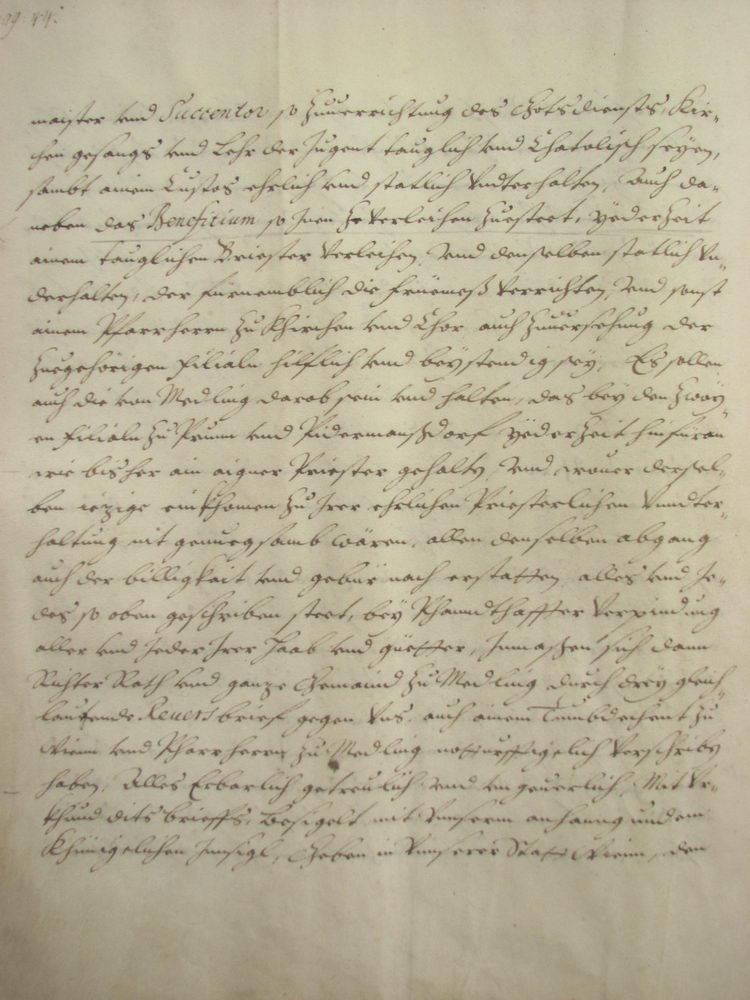 pag: 44.
maister vnd Succentor so zuuerrichtung des Gotsdiensts, Kir-
chen gesangs vnd Lehr der Jugent tauglich vnd Chatolisch seyen,
sambt ainem Custos ehrlich vnd statlich Vndterhalten, Auch da-
neben das Beneficium so Inen ze Verleichen zuesteet, yederzeit
ainem tauglichen Briester Verleichen, Vnd denselben statlich Vn-
derhalten, der fürnemblich die früemeß Verrichten, Vnd sonst
ainem Pfarrherrn zu Khirchen vnd Chor auch zuuersehung der
zuegehörigen filialn hilflich vnd beystendig sey, Es sollen
auch die von Medling darob sein vnd halten, das bey den zway-
en filialn zu Prunn vnd Pidermanßdorf yederzeit hinfüran
wie bisher ain aigner Priester gehalten, Vnd wouer dersel-
ben iezige einkhomen zu Irer ehrlichen Priesterlichen Vnndter-
haltung nit genuegsamb wären, allen denselben abgang
auch der billigkait vnd gebür nach erstatten, alles vnd Je-
des so oben geschriben steet, bey Phanndthaffter Verpindung
aller vnd Jeder Irer Haab vnd güetter, Inmaßen sich dann
Richter Rath vnd ganze Gemaind zu Medling durch drey gleich
lautende Reuers brief gegen Vns, auch ainem Tumbdechent zu
Wienn vnd Pharrherrn zu Medling notturfftigelich Verschriben
haben, Alles Erbarlich getreulich vnd vngeuerlich, Mit Vr-
khund dits brieffs, Besigelt mit Vnnserm anhanngundem
Khünigelichen Innsigl, Geben in Vnnserer Statt Wienn, den